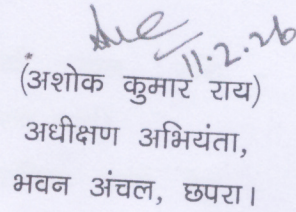 11.2.26
(अशोक कुमार राय)
अधीक्षण अभियंता,
भवन अंचल, छपरा।